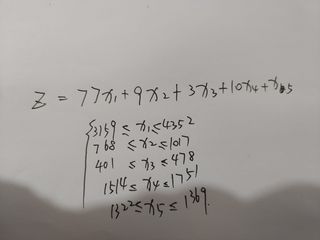 Z = 77x₁+9x₂+3x₃+10x₄+x₅
{3159 ≤ x₁ ≤ 4352
768 ≤ x₂ ≤ 1017
401 ≤ x₃ ≤ 478
1514 ≤ x₄ ≤ 1751
1322 ≤ x₅ ≤ 1369.